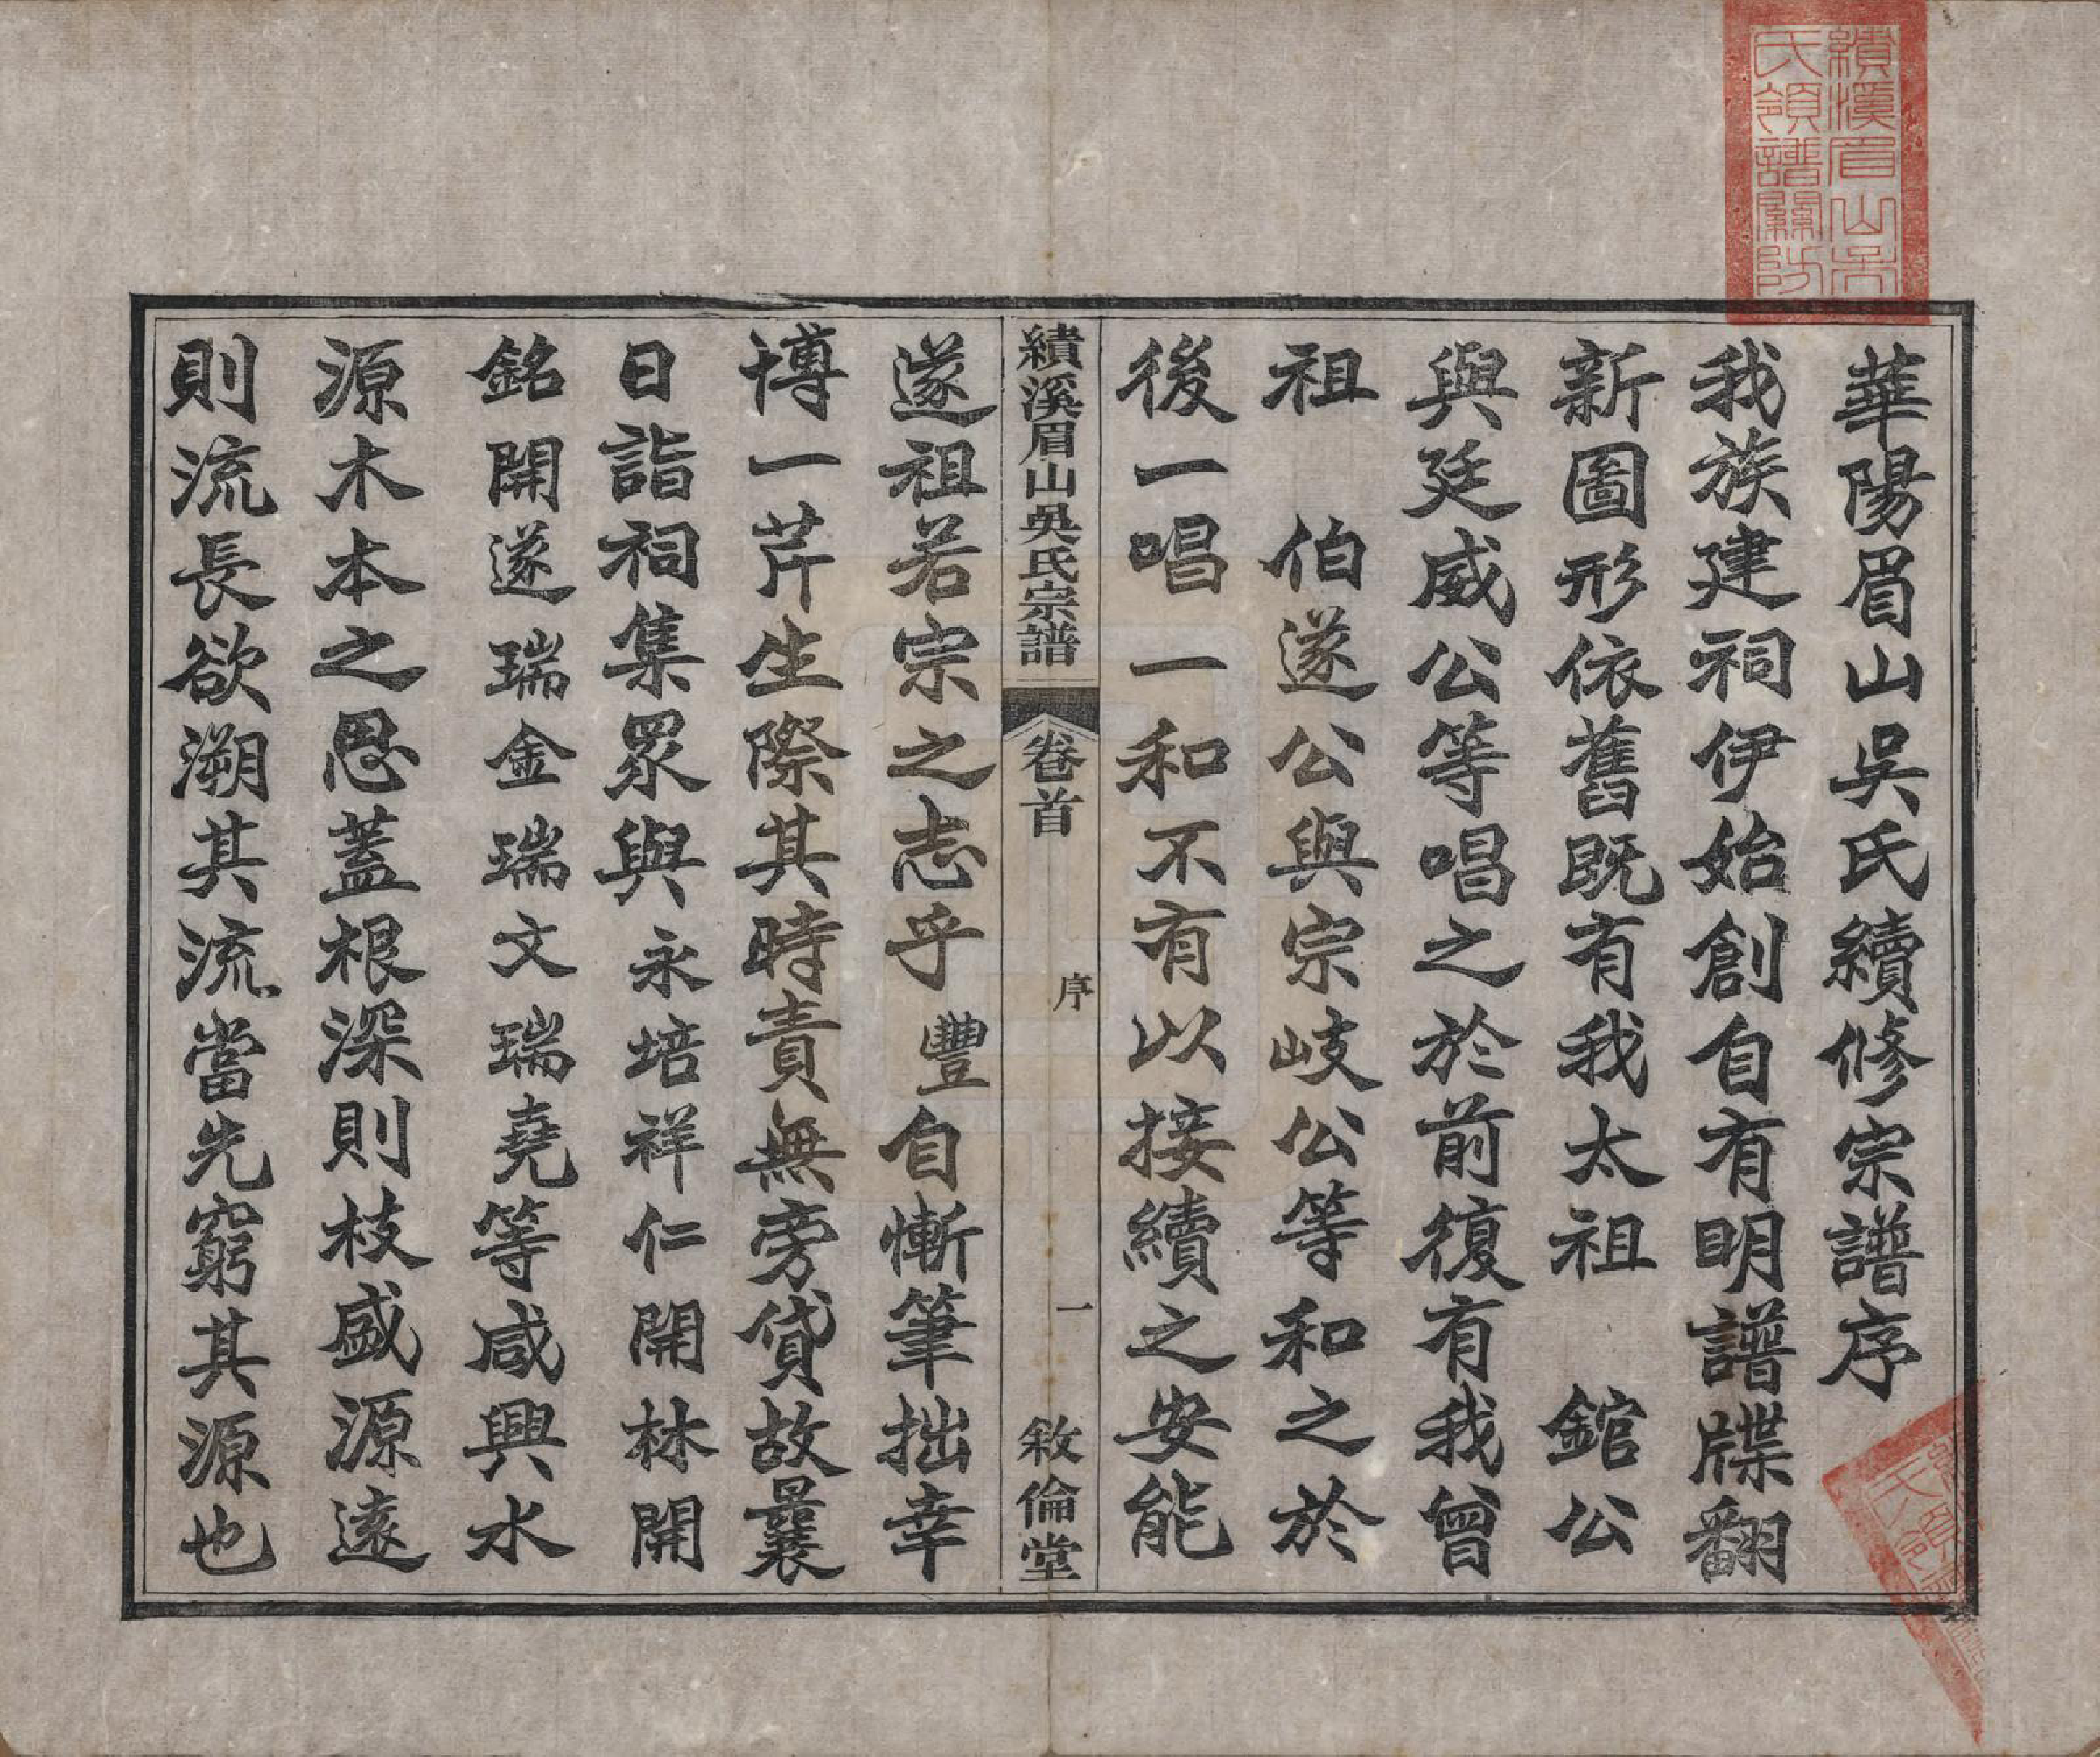 華陽眉山吳氏續修宗譜序
我族建祠伊始創自有明譜牒翻
新圖形依舊既有我太祖　錧公
與廷威公等唱之於前復有我曾
祖　伯遂公與宗岐公等和之於
後一唱一和不有以接續之安能
績溪眉山吳氏宗譜　卷首　序　一　敘倫堂
遂祖若宗之志乎豐自慚筆拙幸
博一芹生際其時責無旁貸故曩
日詣祠集眾與永培祥仁開林開
銘開遂瑞金瑞文瑞堯等咸興水
源木本之思蓋根深則枝盛源遠
則流長欲溯其流當先窮其源也
績溪眉山吳
氏領譜關防